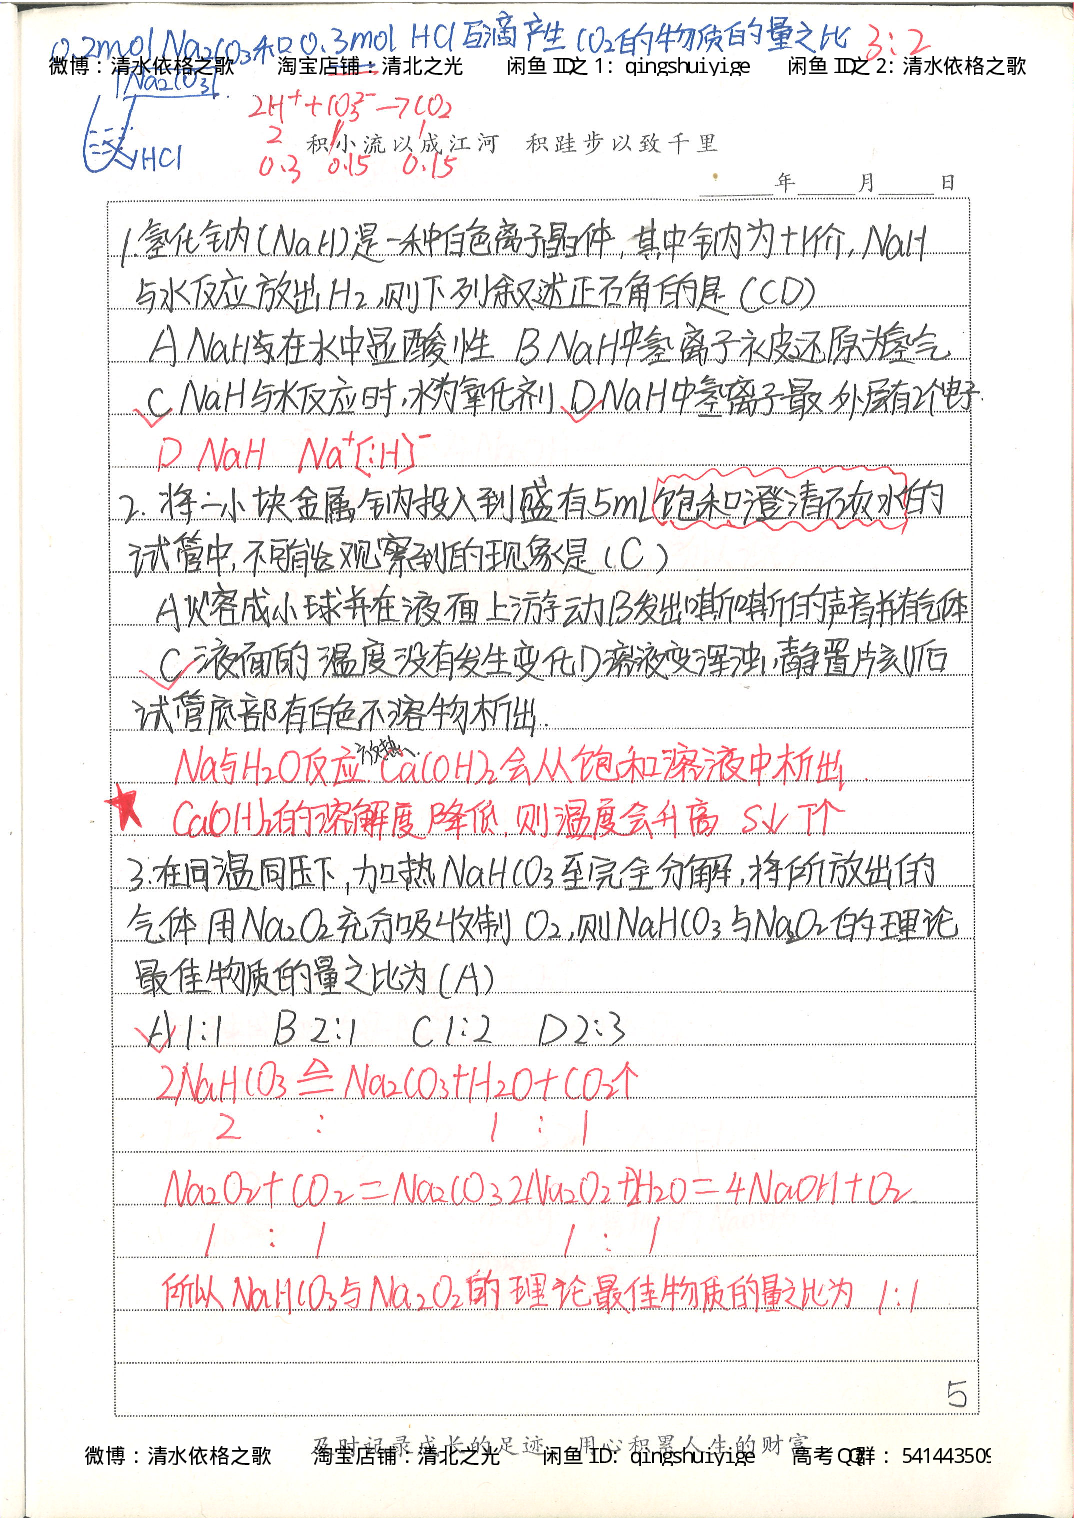 0.2mol Na₂CO₃和0.3mol HCl互滴产生CO₂的物质的量之比 3:2
微博：清水依格之歌 淘宝店铺：清北之光 闲鱼ID之1：qingshuiyige 闲鱼ID之2：清水依格之歌
Na₂CO₃
2H⁺+CO₃²⁻→CO₂
2 1 1
积小流以成江河 积跬步以致千里
HCl
0.3 0.15 0.15
年 月 日
1.氢化钠(NaH)是一种白色离子晶体,其中钠为+1价,NaH
与水反应放出H₂,则下列叙述正确的是(CD)
A NaH与在水中显酸性 B NaH中氢离子被还原为氢气
C NaH与水反应时,水为氧化剂 D NaH中氢离子最外层有2个电子.
D NaH Na⁺[:H]⁻
2.将一小块金属钠投入到盛有5mL饱和澄清石灰水的
试管中,不可能观察到的现象是(C)
A熔成小球并在液面上游动 B发出嘶嘶的声音并有气体
C 液面的温度没有发生变化 D溶液变浑浊,静置片刻后
试管底部有白色不溶物析出.
Na与H₂O反应放热,Ca(OH)₂会从饱和溶液中析出.
★ Ca(OH)₂的溶解度降低,则温度会升高 S↓T↑
3.在同温同压下,加热NaHCO₃至完全分解,将所放出的
气体用Na₂O₂充分吸收制O₂,则NaHCO₃与Na₂O₂的理论
最佳物质的量之比为(A)
A 1:1 B 2:1 C 1:2 D 2:3
2NaHCO₃ ≜ Na₂CO₃+H₂O+CO₂↑
2 : 1 : 1
Na₂O₂+CO₂=Na₂CO₃ 2Na₂O₂+2H₂O=4NaOH+O₂
1 : 1 1 : 1
所以NaHCO₃与Na₂O₂的理论最佳物质的量之比为 1:1
5
及时记录成长的足迹 用心积累人生的财富
微博：清水依格之歌 淘宝店铺：清北之光 闲鱼ID：qingshuiyige 高考QQ群：541443509